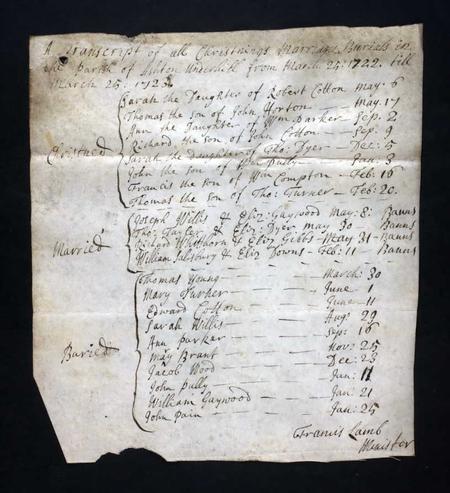 A Transcript of all Christnings Marriages Burials in
the Parish of Ashton Underhill from March 25: 1722. till
March 25: 1723.
Christned
Sarah the Daughter of Robert Cotton May. 6
Thomas the son of John Horton May. 17
Ann the Daughter Wm Parker - Sep. 2
Richard the son of John Cotton - Sep. 9
Sarah the daughter of Tho: Dyer - Dec: 5
John the son of Wm Pully - Jan: 3
Francis the son of Wm Compton - Feb: 16
Thomas the son of Tho: Turner - Feb: 20.
Married
Joseph Willis & Eliz: Gaywood May: 8: Banns
Tho: & Eliz: Dyer May 30 Banns
Richard & Eliz Gibbs - May 31 - Banns
William Salisbury & Eliz Downs - Feb: 11 Banns
Buried
Thomas Young - March: 30
Mary - June 1
Edward Cotton - June 11
Sarah Willis - Aug: 29
Ann Parker - Sep: 16
May Brant - Nov: 25
Jacob Wood - Dec: 23
John Pully - Jan: 11
William Gaywood - Jan: 21
John Pain - Jan: 25
Francis Lamb
Minister